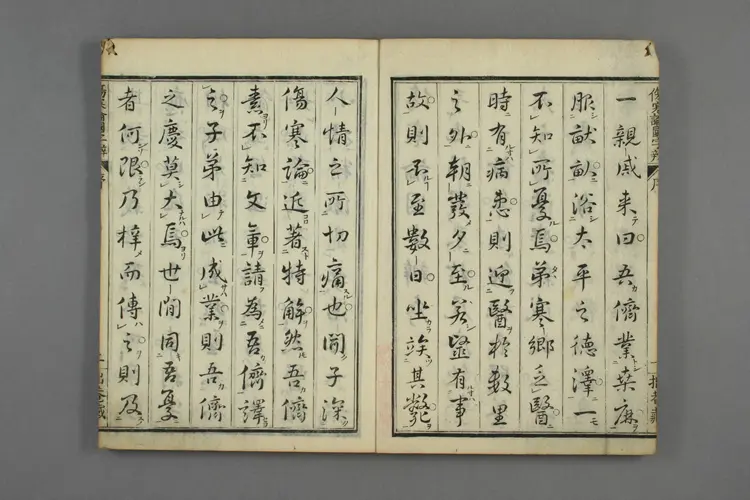 一親戚来曰吾儕業桑麻
服畎畝浴太平之德澤一
不知所憂焉弟寒郷乏醫
時有病患則迎醫於數里
之外朝發夕至若醫有事
故則不至數日坐竢其斃
人情之所切痛也聞子深
傷寒論近著特解然吾儕
素不知文章請為吾儕譯
之子弟由此成業則吾儕
之慶莫大焉世間同吾憂
者何限乃梓而傳之則及